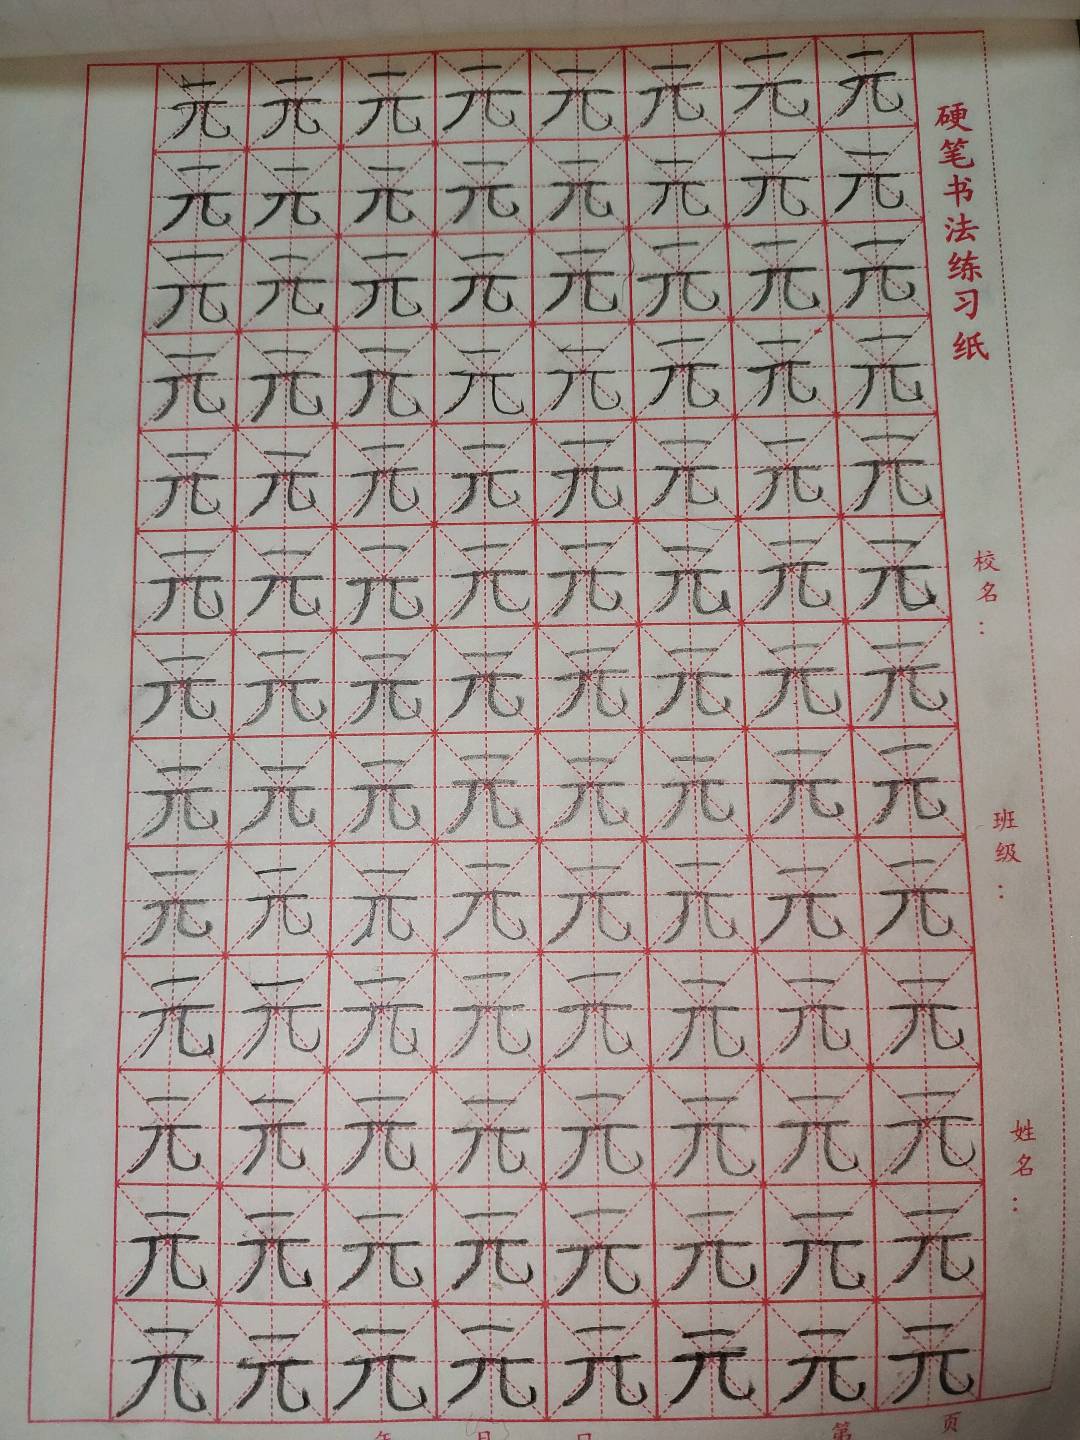 元元元元元元元元
元元元元元元元元
元元元元元元元元
元元元元元元元元
元元元元元元元元
元元元元元元元元
元元元元元元元元
元元元元元元元元
元元元元元元元元
元元元元元元元元
元元元元元元元元
元元元元元元元元
元元元元元元元元
硬笔书法练习纸
校名：
班级：
姓名：
年 月 日 第 页